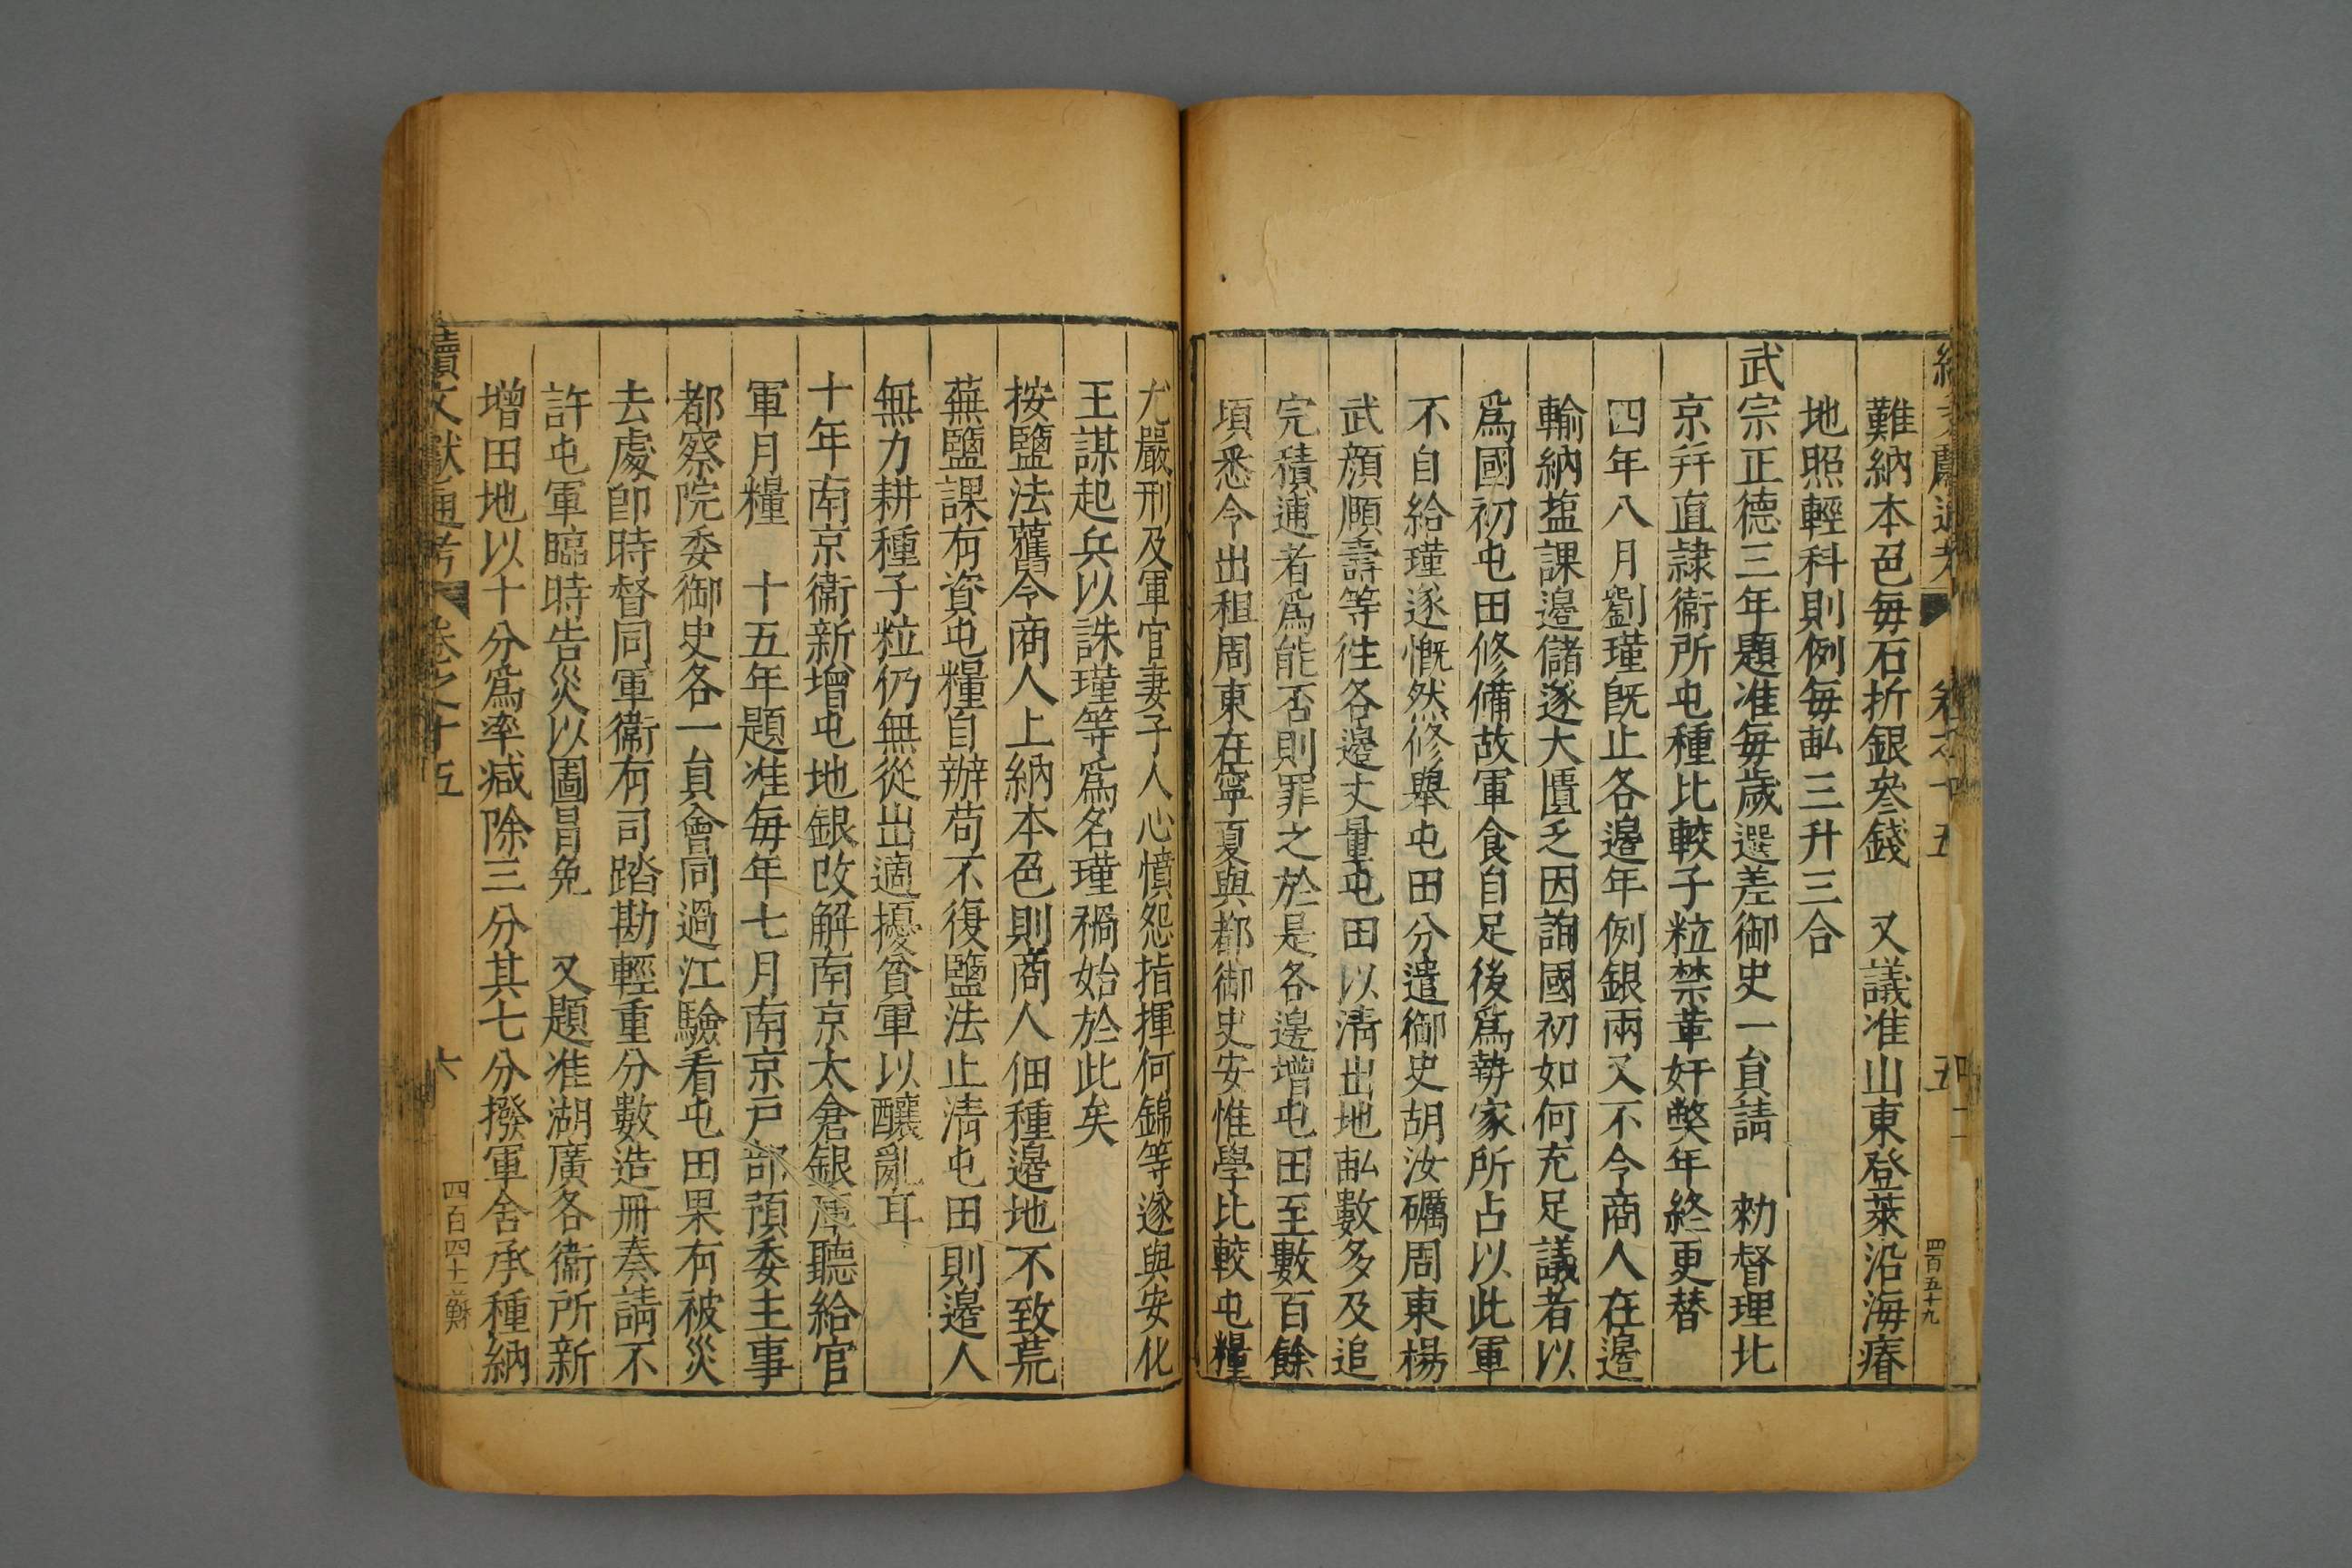 續文獻通考 卷之十五 五 四百五十九
難納本色每石折銀叄錢 又議准山東登萊沿海瘠
地照輕科則例每畝三升三合
武宗正德三年題准每歲選差御史一員請 勑督理北
京并直隸衛所屯種比較子粒禁革奸獘年終更替
四年八月劉瑾旣止各邊年例銀兩又不令商人在邊
輸納塩課邊儲遂大匱乏因詢國初如何充足議者以
爲國初屯田修備故軍食自足後爲勢家所占以此軍
不自給瑾遂慨然修舉屯田分遣御史胡汝礪周東楊
武顔頤壽等徃各邊丈量屯田以淸出地畝數多及追
完積逋者爲能否則罪之於是各邊增屯田至數百餘
頃悉令出租周東在寧夏與都御史安惟學比較屯糧
尤嚴刑及軍官妻子人心憤怨指揮何錦等遂與安化
王謀起兵以誅瑾等爲名瑾禍始於此矣
按鹽法舊令商人上納本色則商人佃種邊地不致荒
蕪鹽課有資屯糧自辦苟不復鹽法止淸屯田則邊人
無力耕種子粒仍無從出適擾貧軍以釀亂耳
十年南京衛新增屯地銀改解南京太倉銀庫聽給官
軍月糧 十五年題准每年七月南京戶部預委主事
都察院委御史各一員會同過江驗看屯田果有被災
去處卽時督同軍衛有司踏勘輕重分數造冊奏請不
許屯軍臨時告災以圖冒免 又題准湖廣各衛所新
增田地以十分爲率减除三分其七分撥軍舍承種納
續文獻通考 卷之十五 六 四百四十二